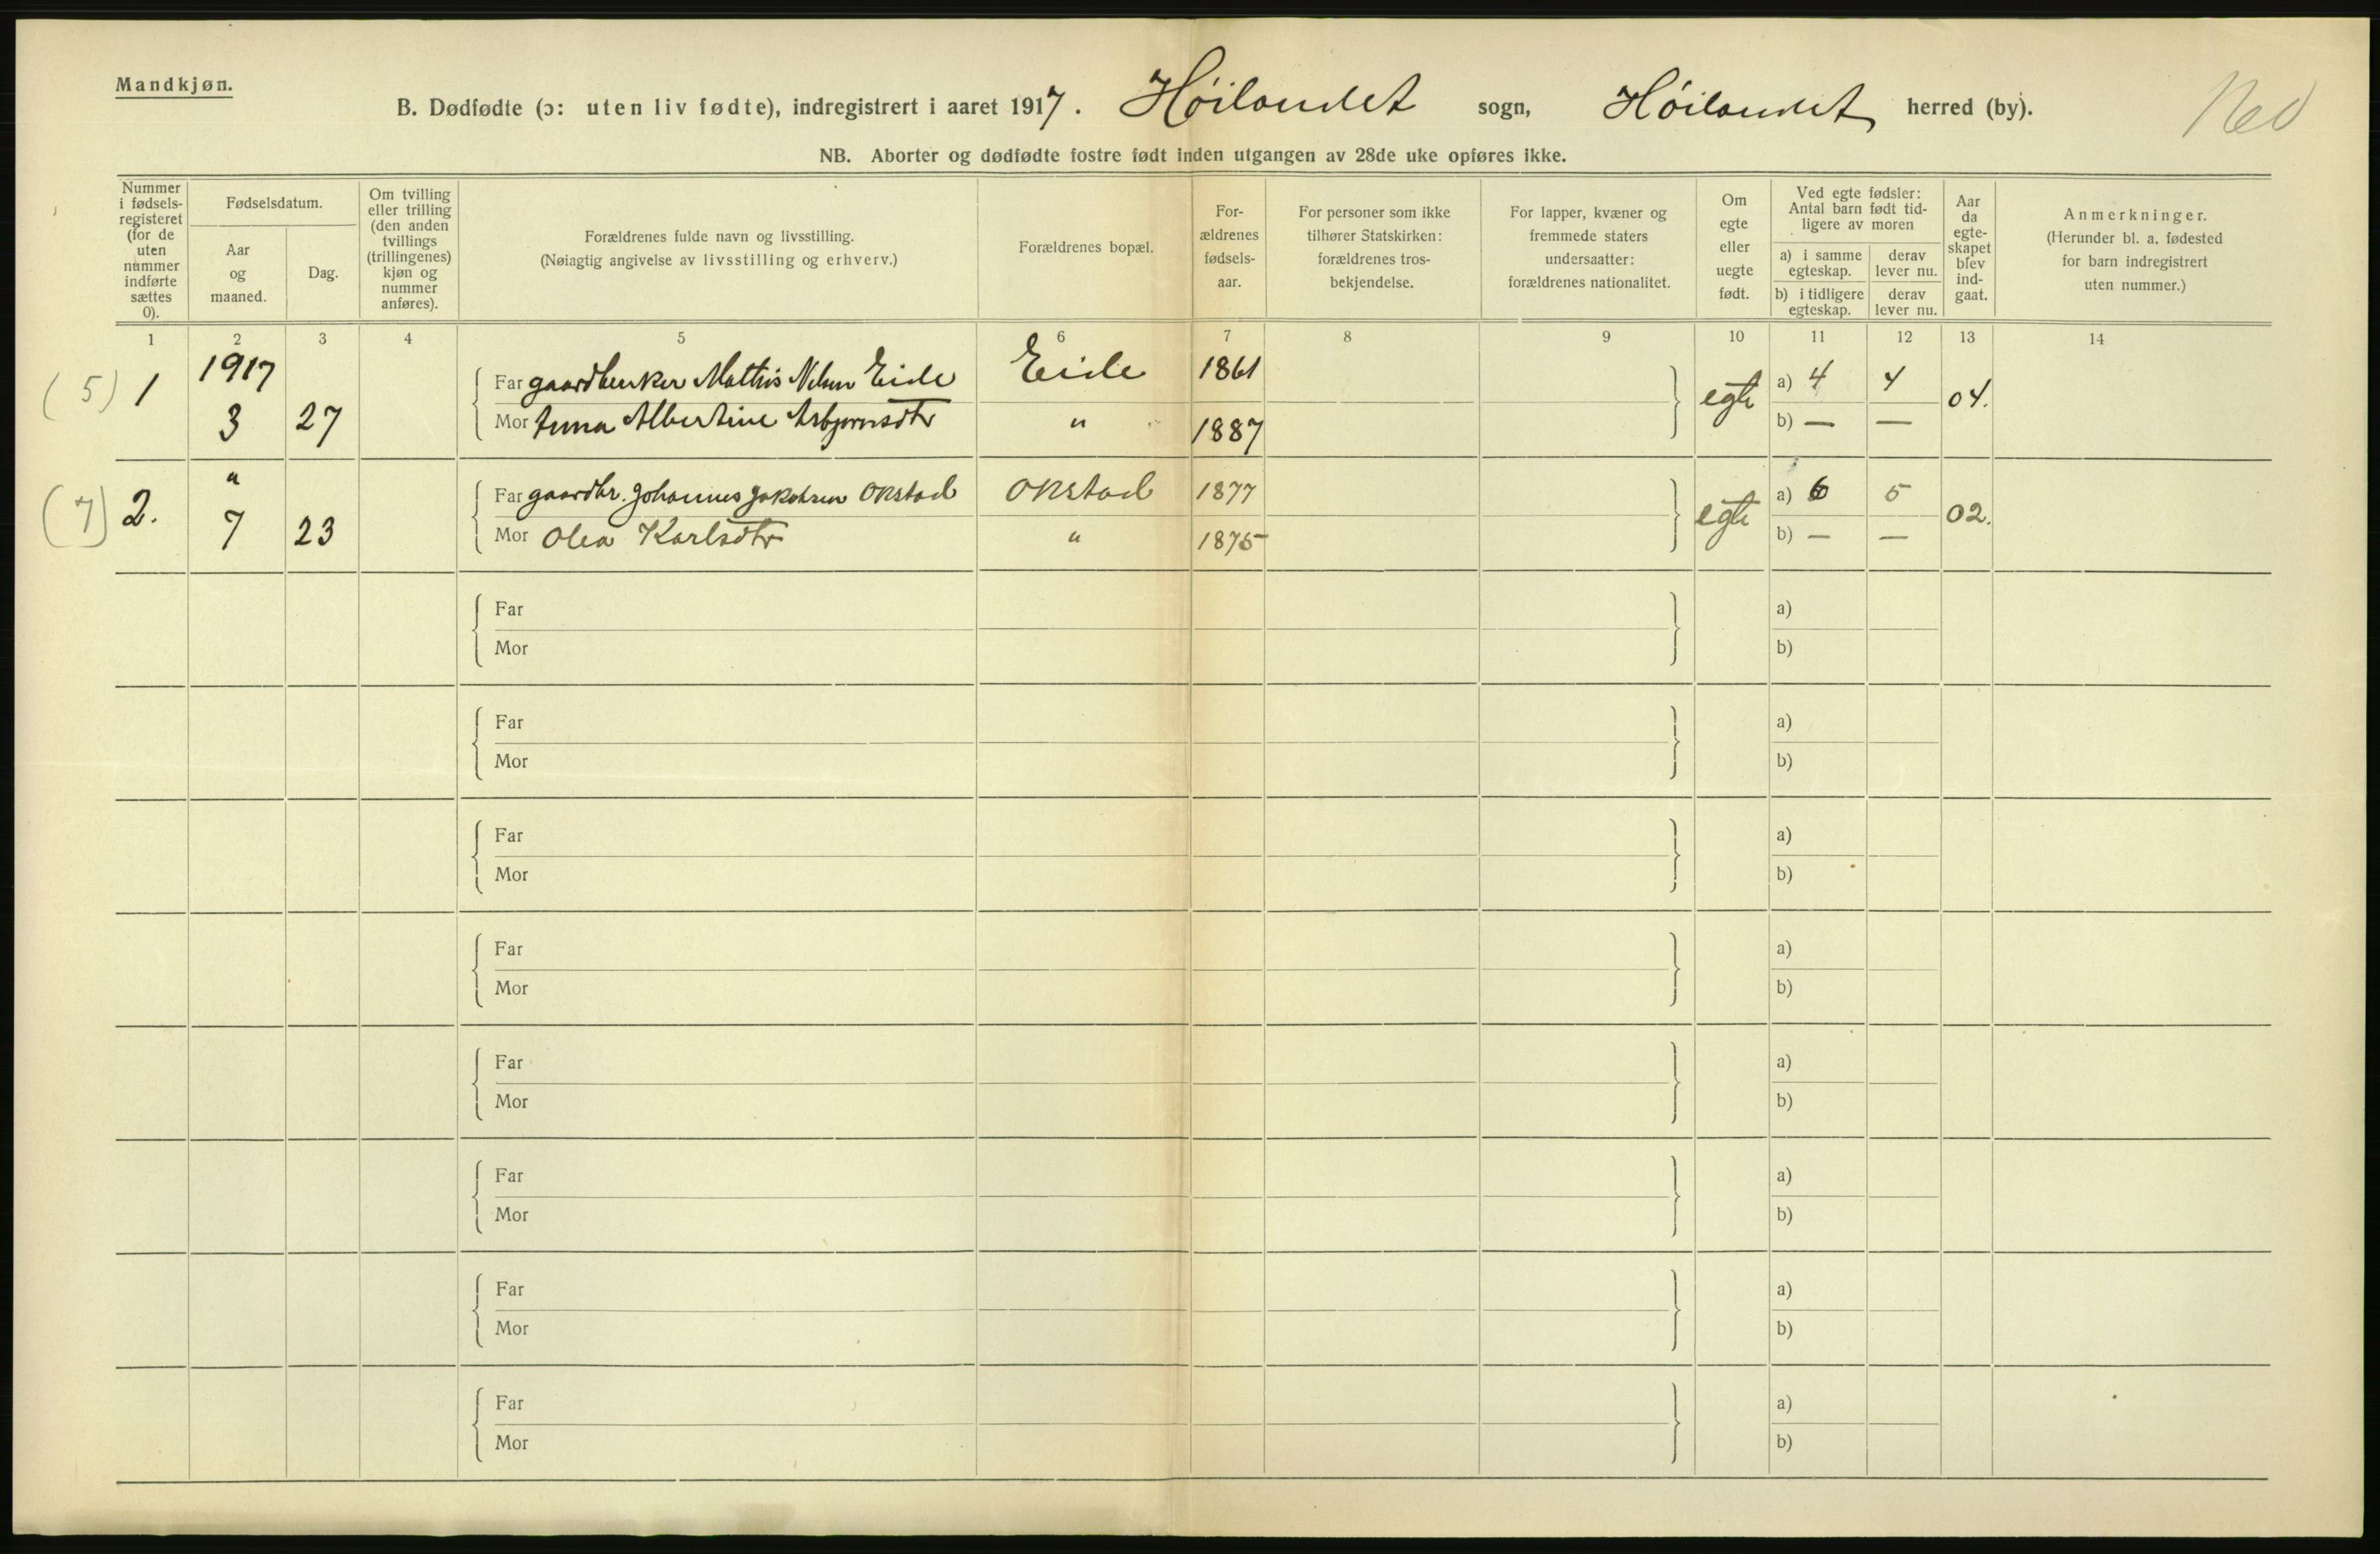 Mandkjøn.
B. Dødfødte (ɔ: uten liv fødte), indregistrert i aaret 1917. Höilandet sogn, Höilandet herred (by).
NB. Aborter og dødfødte fostre født inden utgangen av 28de uke opføres ikke.
Nummer i fødsels-registeret (for de uten nummer indførte sættes 0).
Fødselsdatum.
Aar og maaned.
Dag.
Om tvilling eller trilling (den anden tvillings (trillingenes) kjøn og nummer anføres).
Forældrenes fulde navn og livsstilling.
(Nøiagtig angivelse av livsstilling og erhverv.)
Forældrenes bopæl.
For-ældrenes fødsels-aar.
For personer som ikke tilhører Statskirken: forældrenes tros-bekjendelse.
For lapper, kvæner og fremmede staters undersaatter: forældrenes nationalitet.
Om egte eller uegte født.
Ved egte fødsler: Antal barn født tid-ligere av moren
a) i samme egteskap.
derav lever nu.
b) i tidligere egteskap.
derav lever nu.
Aar da egte-skapet blev ind-gaat.
Anmerkninger.
(Herunder bl. a. fødested for barn indregistrert uten nummer.)
1 2 3 4 5 6 7 8 9 10 11 12 13 14
(5) 1 1917 3 27
Far gaardbruker Mathis Nelsen Eide Eide 1861 egte a) 4 4 04.
Mor Anna Albertine Asbjørnsdtr " 1887 b) — —
(7) 2. " 7 23
Far gaardbr. Johannes Jakobsen Okstad Okstad 1877 egte a) 6 5 02.
Mor Olea Karlsdtr " 1875 b) — —
Far a)
Mor b)
Far a)
Mor b)
Far a)
Mor b)
Far a)
Mor b)
Far a)
Mor b)
Far a)
Mor b)
Far a)
Mor b)
Far a)
Mor b)